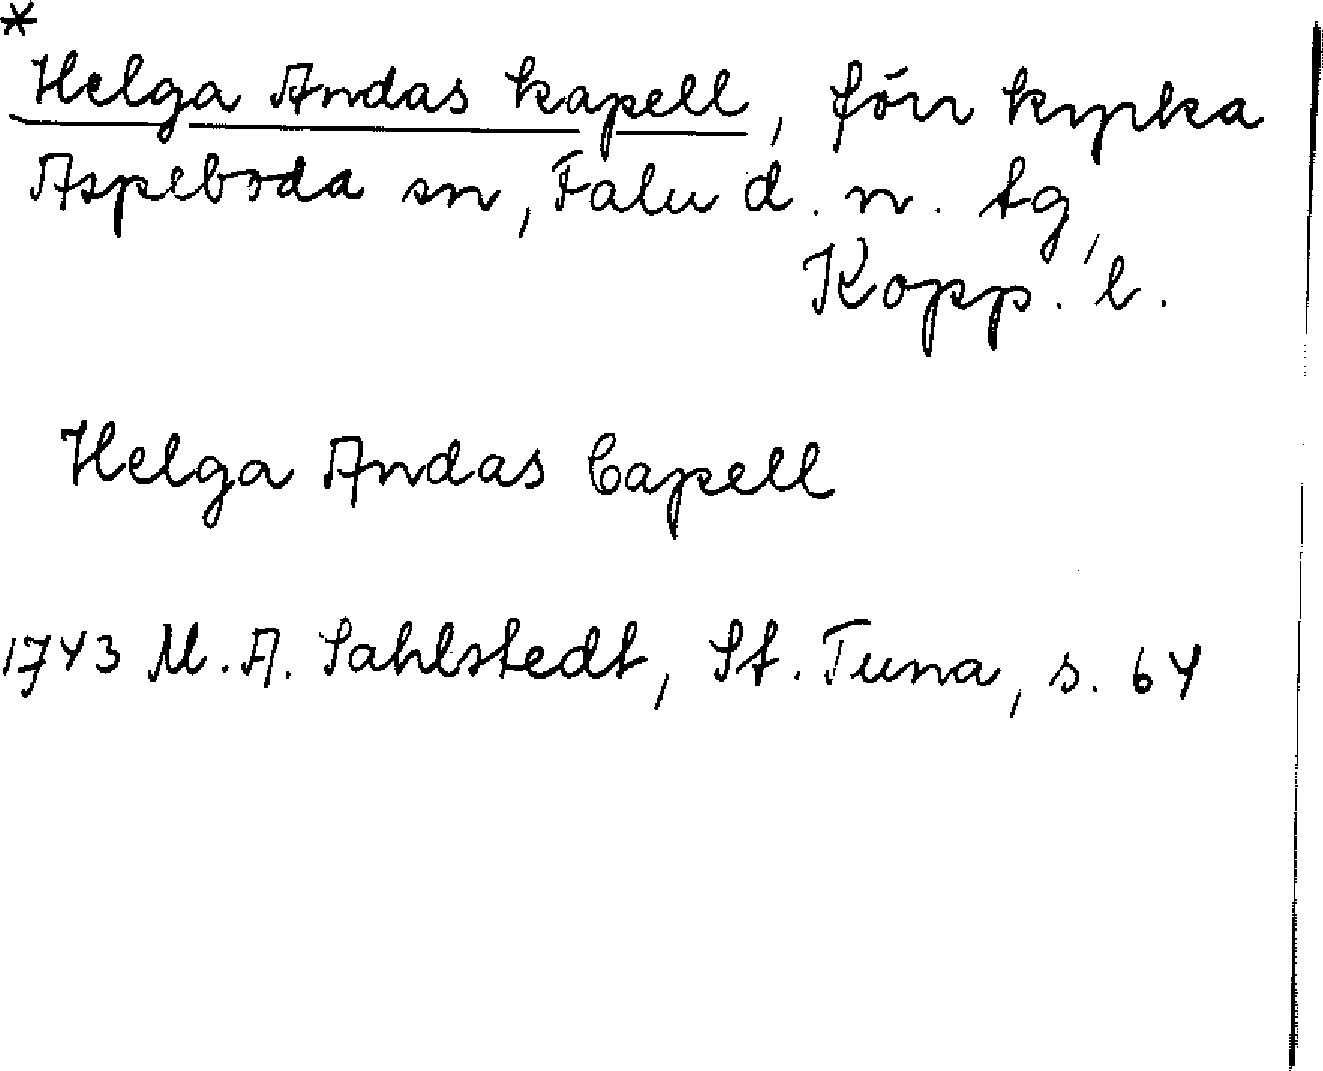 *
Helga Andas kapell, förr kyrka
Aspeboda sn, Falu d. n. tg,
Kopp. l.
Helga Andas Capell
1743 M. A. Sahlstedt, St. Tuna, s. 64